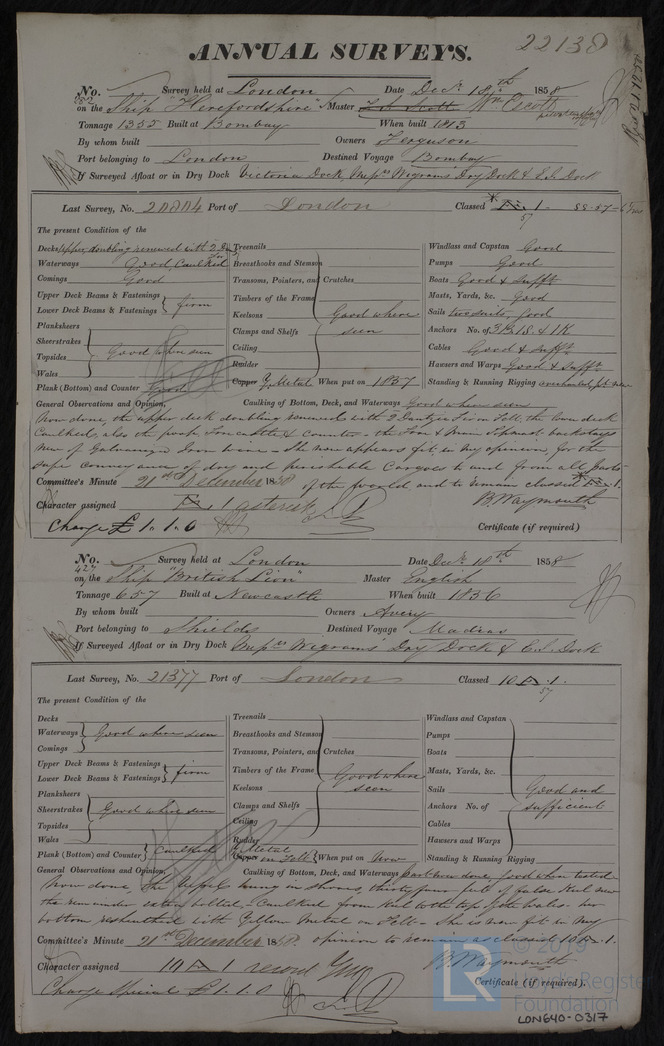 22138
ANNUAL SURVEYS.
No. 282 Survey held at London Date Decr. 18th 1858
on the Ship "Herefordshire" Master F. S. Scott Wm Escott
Tonnage 1355 Built at Bombay When built 1813
By whom built Owners Ferguson
Port belonging to London Destined Voyage Bombay
If Surveyed Afloat or in Dry Dock Victoria Dock, Messrs Wigrams Dry Dock & E.I. Dock
Last Survey, No. Port of London Classed * Æ 1 57
The present Condition of the
Decks upper doubling renewed with 2 In
Waterways Good, Caulked
Comings Good
Upper Deck Beams & Fastenings
Lower Deck Beams & Fastenings } firm
Planksheers
Sheerstrakes
Topsides } Good where seen
Wales
Plank (Bottom) and Counter Good
Treenails
Breasthooks and Stemson
Transoms, Pointers, and Crutches
Timbers of the Frame
Keelsons } Good where seen
Clamps and Shelfs
Ceiling
Rudder
Copper Y. Metal When put on 1857
Windlass and Capstan Good
Pumps Good
Boats Good & Sufft
Masts, Yards, &c. Good
Sails two suits, Good
Anchors No. of 3B 1S & 1K
Cables Good & Sufft
Hawsers and Warps Good & Sufft
Standing & Running Rigging overhauled, part new
General Observations and Opinion, Caulking of Bottom, Deck, and Waterways Good where seen
Now done, the upper deck doubling renewed with 2 In on Felt, the lower deck
Caulked, also the poop, Forecastle & counter – the Fore & Main Topmast backstays
new of Galvanized Iron wire – She now appears fit in my opinion, for the
safe conveyance of dry and perishable Cargoes to and from all parts
Committee's Minute 21st December 1858 of the world and to remain classed * Æ 1.
Character assigned Æ 1 asterisk B. Waymouth
Charge £ 1. 1. 0 Certificate (if required)
No. 427 Survey held at London Date Decr. 18th 1858
on the Ship "British Lion" Master English
Tonnage 657 Built at Newcastle When built 1836
By whom built Owners Avery
Port belonging to Shields Destined Voyage Madras
If Surveyed Afloat or in Dry Dock Messrs Wigrams Dry Dock & E.I. Dock
Last Survey, No. 21377 Port of London Classed 10 Æ 1. 57
The present Condition of the
Decks
Waterways } Good where seen
Comings
Upper Deck Beams & Fastenings
Lower Deck Beams & Fastenings } firm
Planksheers
Sheerstrakes } Good where seen
Topsides
Wales
Plank (Bottom) and Counter } Caulked
Treenails
Breasthooks and Stemson
Transoms, Pointers, and Crutches
Timbers of the Frame } Good where seen
Keelsons
Clamps and Shelfs
Ceiling
Rudder
Copper Y. Metal on Felt When put on Now
Windlass and Capstan
Pumps
Boats
Masts, Yards, &c.
Sails } Good and
Anchors No. of sufficient
Cables
Hawsers and Warps
Standing & Running Rigging
General Observations and Opinion, Caulking of Bottom, Deck, and Waterways part now done, good when tested
Now done, the Vessel hung in shores, thirty four feet of false Keel new
the remainder extra bolted – Caulked from Keel to the top of the wales – her
bottom resheathed with Yellow Metal on Felt – She is now fit in my
Committee's Minute 21st December 1858. opinion to remain as classed 10 Æ 1.
Character assigned 10 Æ 1 record B. Waymouth
Charge Special £ 1. 1. 0 Certificate (if required).
LR
© 2019
Lloyd's Register
Foundation
LON640-0317